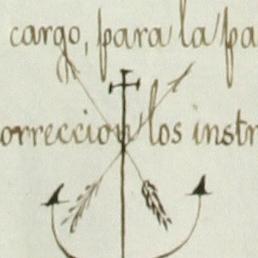 cargo, para la pa
orreccion los instr